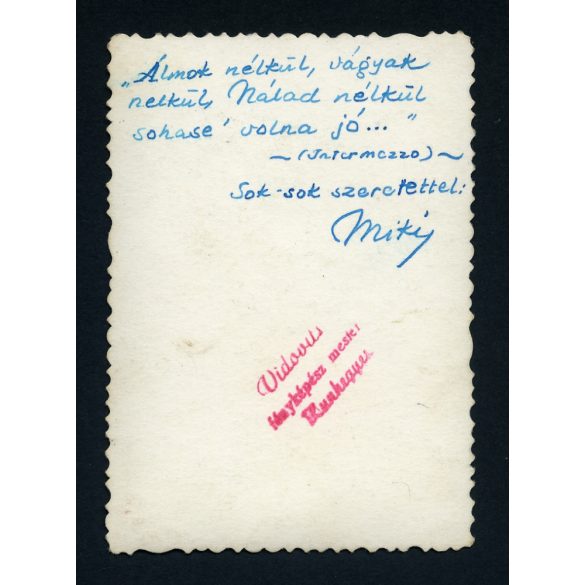 „Álmok nélkül, vágyak
nelkül, Nálad nélkül
sohase' volna jó..."
~(Intermezzo)~
Sok-sok szeretettel:
Miki
Vidovits
fényképész mester
Kunhegyes